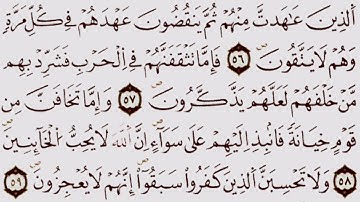 ٱلَّذِينَ عَٰهَدتَّ مِنۡهُمۡ ثُمَّ يَنقُضُونَ عَهۡدَهُمۡ فِي كُلِّ مَرَّةٖ
وَهُمۡ لَا يَتَّقُونَ ٥٦ فَإِمَّا تَثۡقَفَنَّهُمۡ فِي ٱلۡحَرۡبِ فَشَرِّدۡ بِهِم
مَّنۡ خَلۡفَهُمۡ لَعَلَّهُمۡ يَذَّكَّرُونَ ٥٧ وَإِمَّا تَخَافَنَّ مِن
قَوۡمٍ خِيَانَةٗ فَٱنۢبِذۡ إِلَيۡهِمۡ عَلَىٰ سَوَآءٍۚ إِنَّ ٱللَّهَ لَا يُحِبُّ ٱلۡخَآئِنِينَ
٥٨ وَلَا تَحۡسِبَنَّ ٱلَّذِينَ كَفَرُواْ سَبَقُوٓاْۚ إِنَّهُمۡ لَا يُعۡجِزُونَ ٥٩